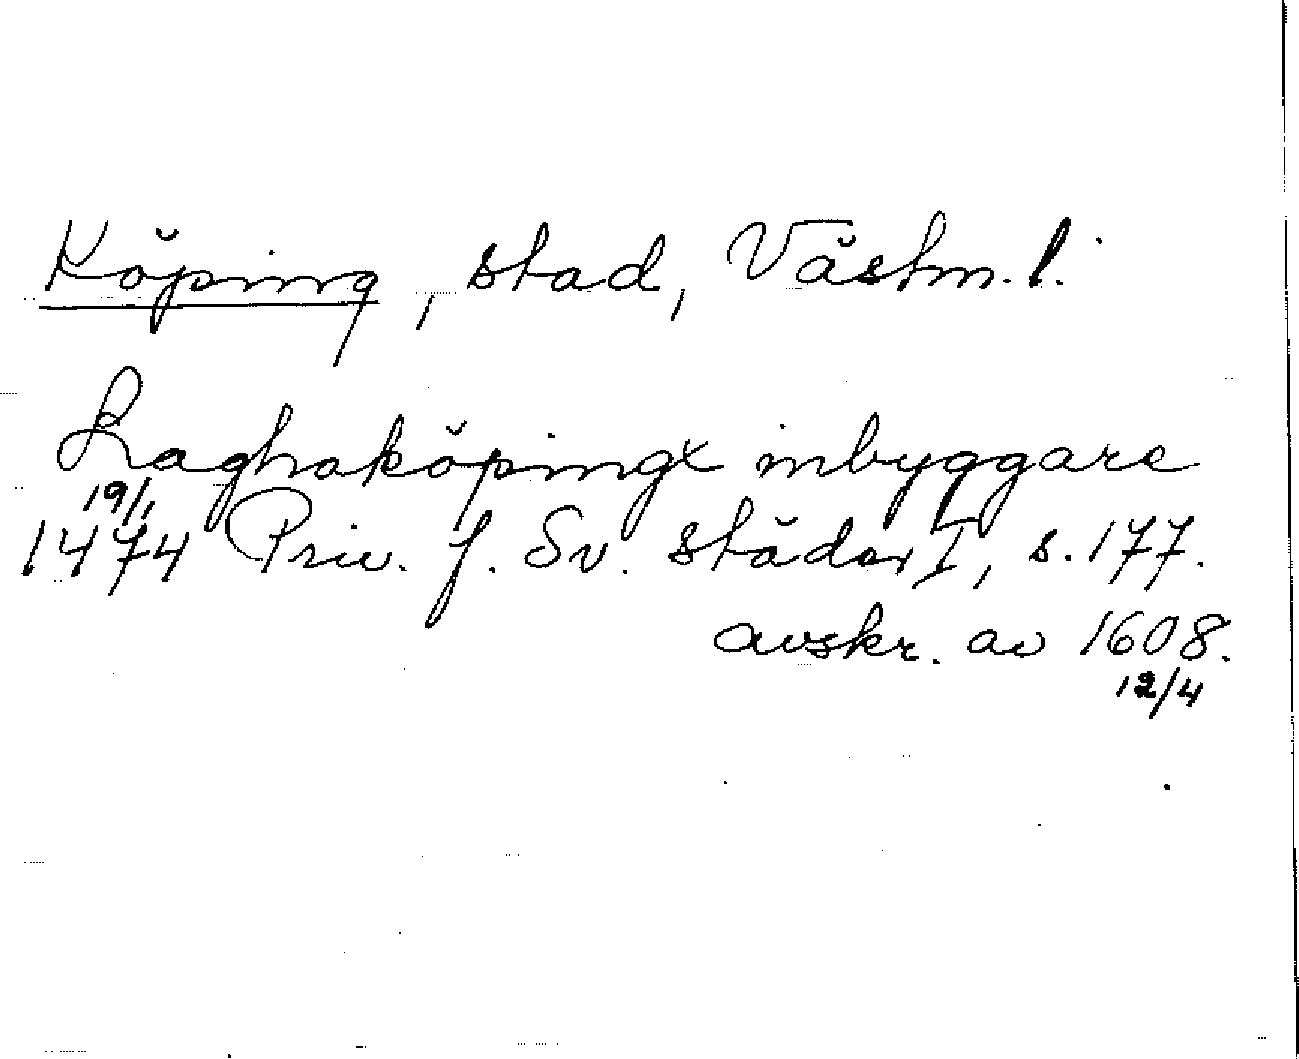 Köping, stad, Västm. l.
Laghaköpingx inbyggare
19/1
1474 Priv. f. Sv. städer I, s. 177.
avskr. av 1608.
12/4